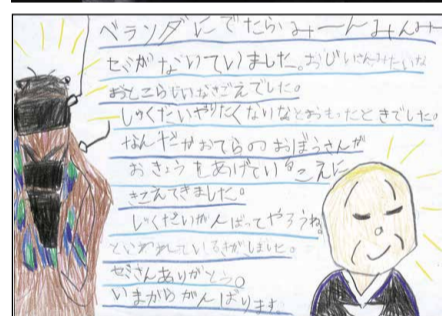 ベランダにでたらみーんみんみー
セミがないていました。おじいさんみたいな
おとこらしいなきごえでした。
しゅくだいやりたくないなとおもったときでした。
なんだかおてらのおぼうさんが
おきょうをあげているこえに
きこえてきました。
しゅくだいがんばってやろうね
といっているきがしました。
セミさんありがとう。
いまからがんばります。